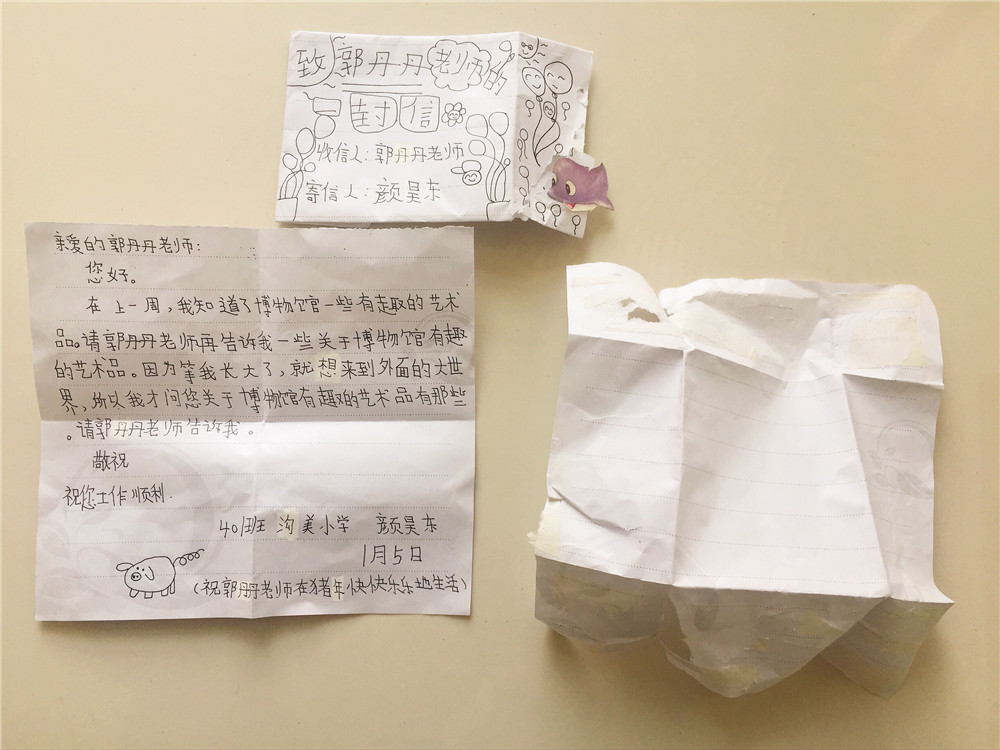 致郭丹丹老师的
一封信
收信人：郭丹丹老师
寄信人：颜昊东
亲爱的郭丹丹老师：
您好。
在上一周，我知道了博物馆一些有趣的艺术
品。请郭丹丹老师再告诉我一些关于博物馆有趣
的艺术品。因为等我长大了，就想来到外面的大世
界，所以我才问您关于博物馆有趣的艺术品有那些
。请郭丹丹老师告诉我。
敬祝
祝您工作顺利.
401班 沟美小学 颜昊东
1月5日
（祝郭丹丹老师在猪年快快乐乐地生活）